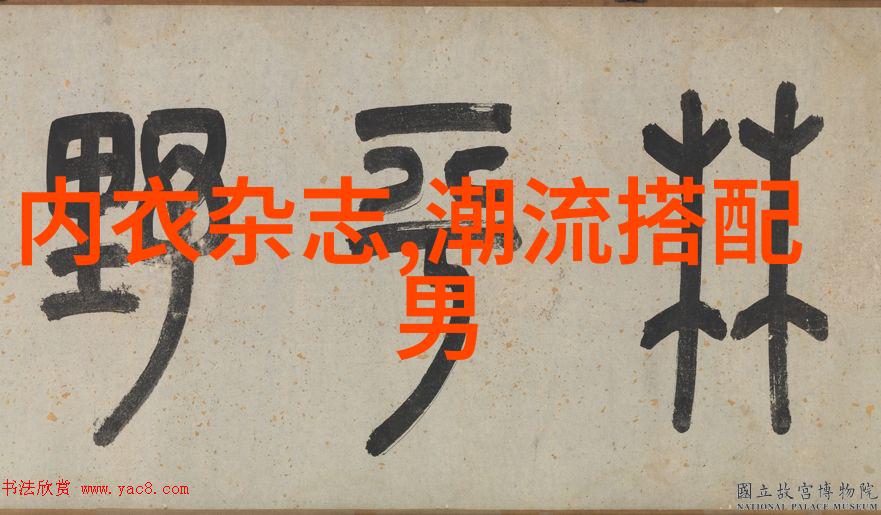 林平野
内衣杂志,潮流搭配
男
书法欣赏 www.yac8.com
國立故宮博物院
NATIONAL PALACE MUSEUM